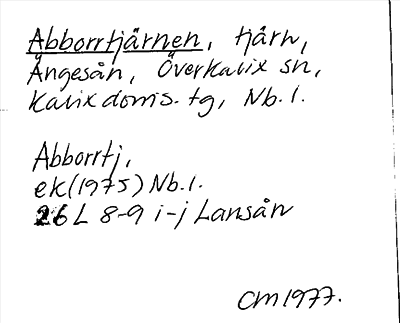 Abborrtjärnen, tjärn,
Ängesån, Överkalix sn,
Kalix doms. tg, Nb. l.
Abborrtj,
ek (1975) Nb. l.
26 L 8-9 i-j Lansån
CM 1977.